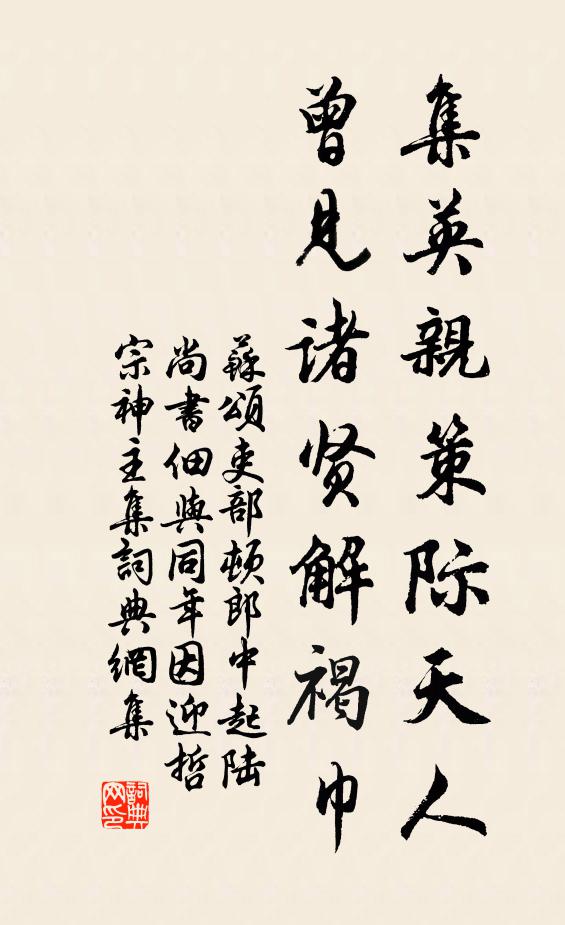 集英親策际天人
曾見诸贤解褐巾
蘇頌吏部頓郎中起陆
尚書佃與同年因迎哲
宗神主集詞典網集
詞典网印